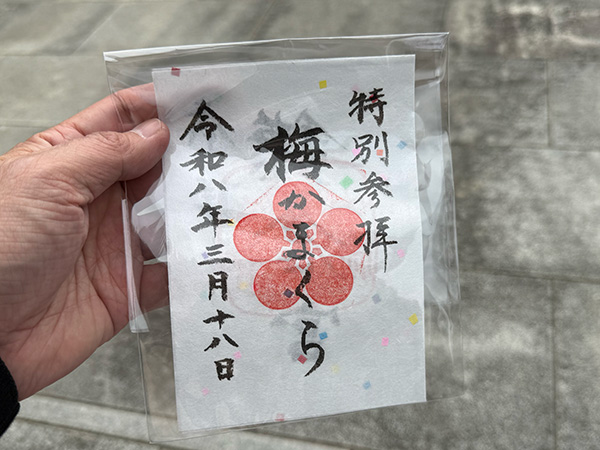 特別参拝
梅かまくら
令和八年三月十八日